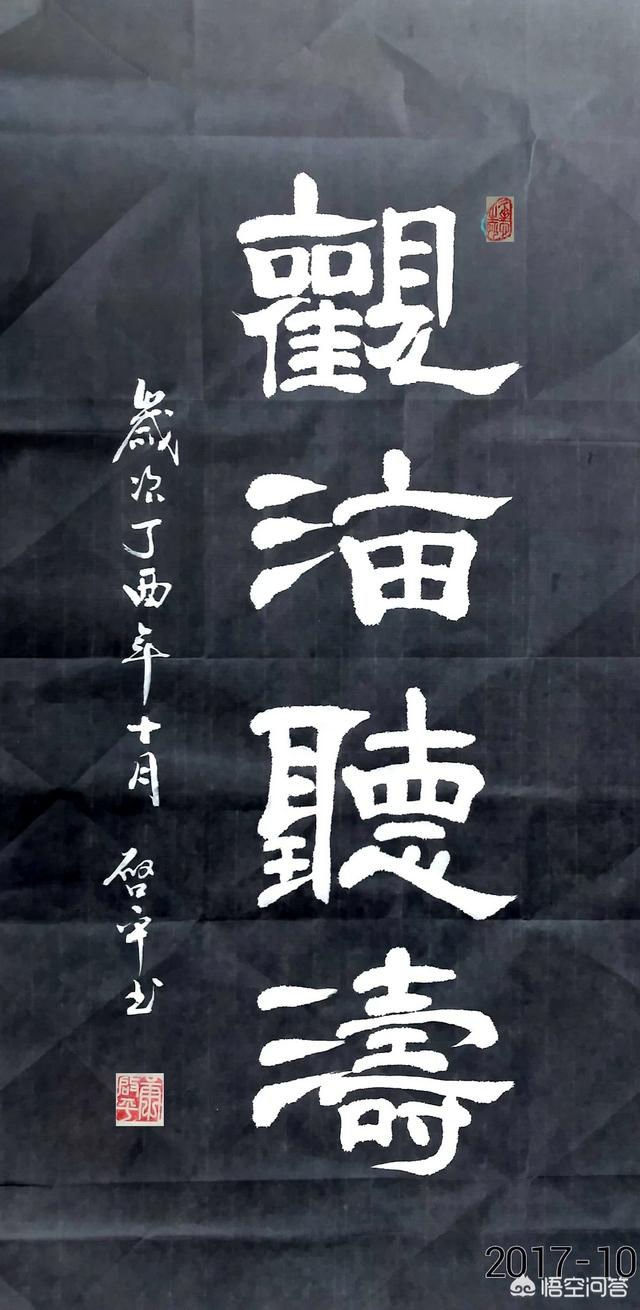 觀海聽濤
歲次丁酉年十月 啓平书
2017-10
悟空问答